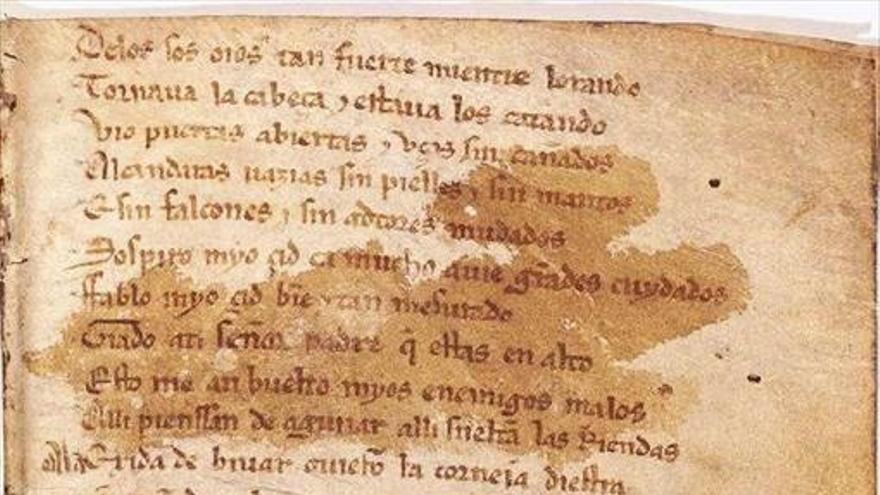 Delos sos oios tan fuerte mientre lorando
Tornaua la cabeça y estaua los catando
Vio puertas abiertas y vços sin cañados
Alcandaras uazias sin pielles y sin mantos
E sin falcones y sin adtores mudados
Sospiro myo çid ca mucho auie grãdes cuydados
ffablo myo çid biẽ y tan mesurado
Grado ati señor padre q̃ estas en alto
Esto me an buelto myos enemigos malos
Alli pienssan de aguiiar alli sueltã las Riendas
Ala Exida de biuar ouierõ la corneja diestra